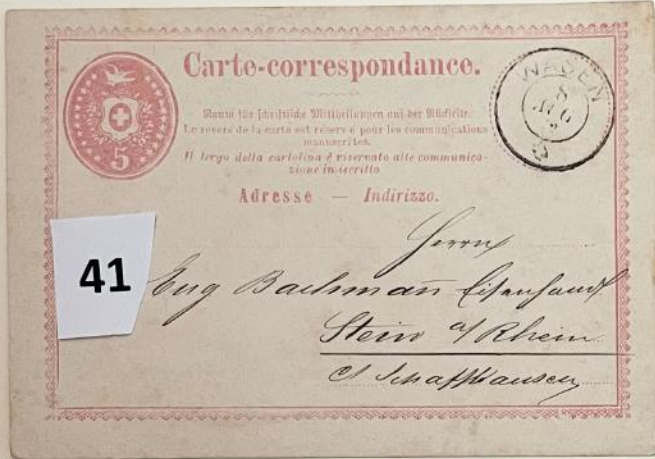 Carte-correspondance.
Raum für schriftliche Mittheilungen auf der Rückseite.
Le revers de la carte est réservé pour les communications
manuscrites.
Il tergo della cartolina è riservato alle communica-
zione in iscritto
Adresse — Indirizzo.
5
WASEN
8
41
Herrn
Eug Bachmañ Eisenhandl
Stein a/Rhein
Ct Schaffhausen